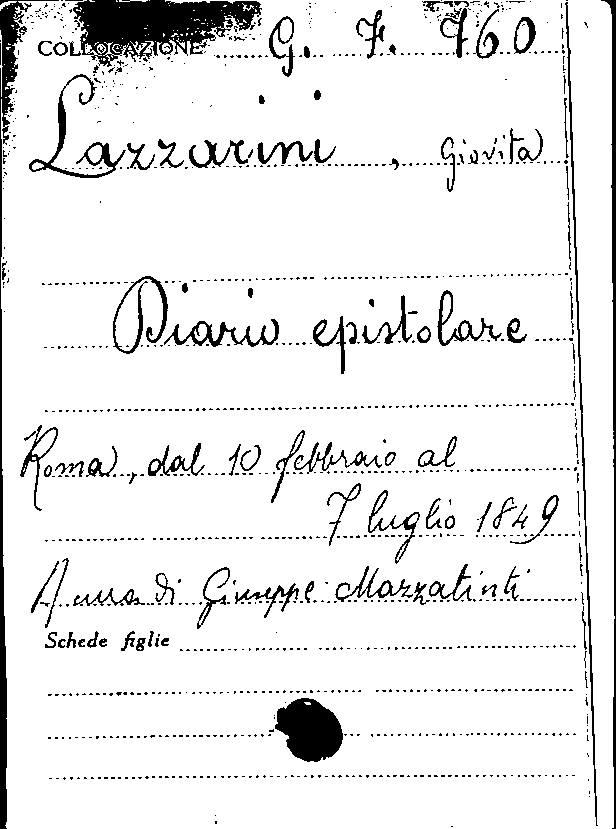 COLLOCAZIONE G. F. 760
Lazzarini, Giovita
Diario epistolare
Roma, dal 10 febbraio al
7 luglio 1849
A cura di Giuseppe Mazzatinti
Schede figlie